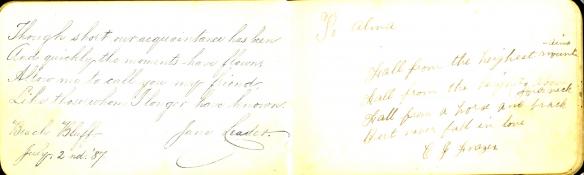 Though short our acquaintance has been
And quickly the moments have flown,
Allow me to call you my friend,
Like those whom I longer have known.
Beach Bluff
Jane Leader.
July 2nd. '87
To Alma
Fall from the heighest mountains
Fall from the
Fall from a horse and brack your neck
But never fall in love
C J Frazer